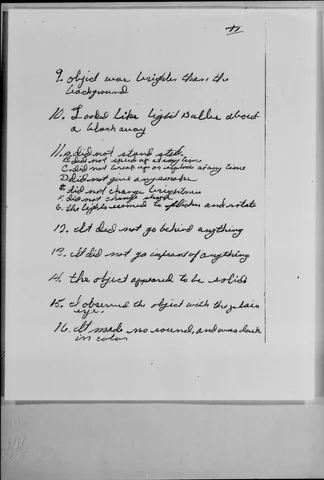 9. object was brighter than the
background
10. Looked like light bulbs about
a block away
11. A. did not stand still
B. did not speed up at any time
C. did not break up or explode at any time
D. did not give any smoke
E. did not change brightness
F. did not change shape
G. the lights seemed to flicker and rotate
12. It did not go behind anything
13. It did not go infront of anything
14. the object appeared to be solid
15. I observed the object with the plain
eye.
16. It made no sound, and was dark
in color